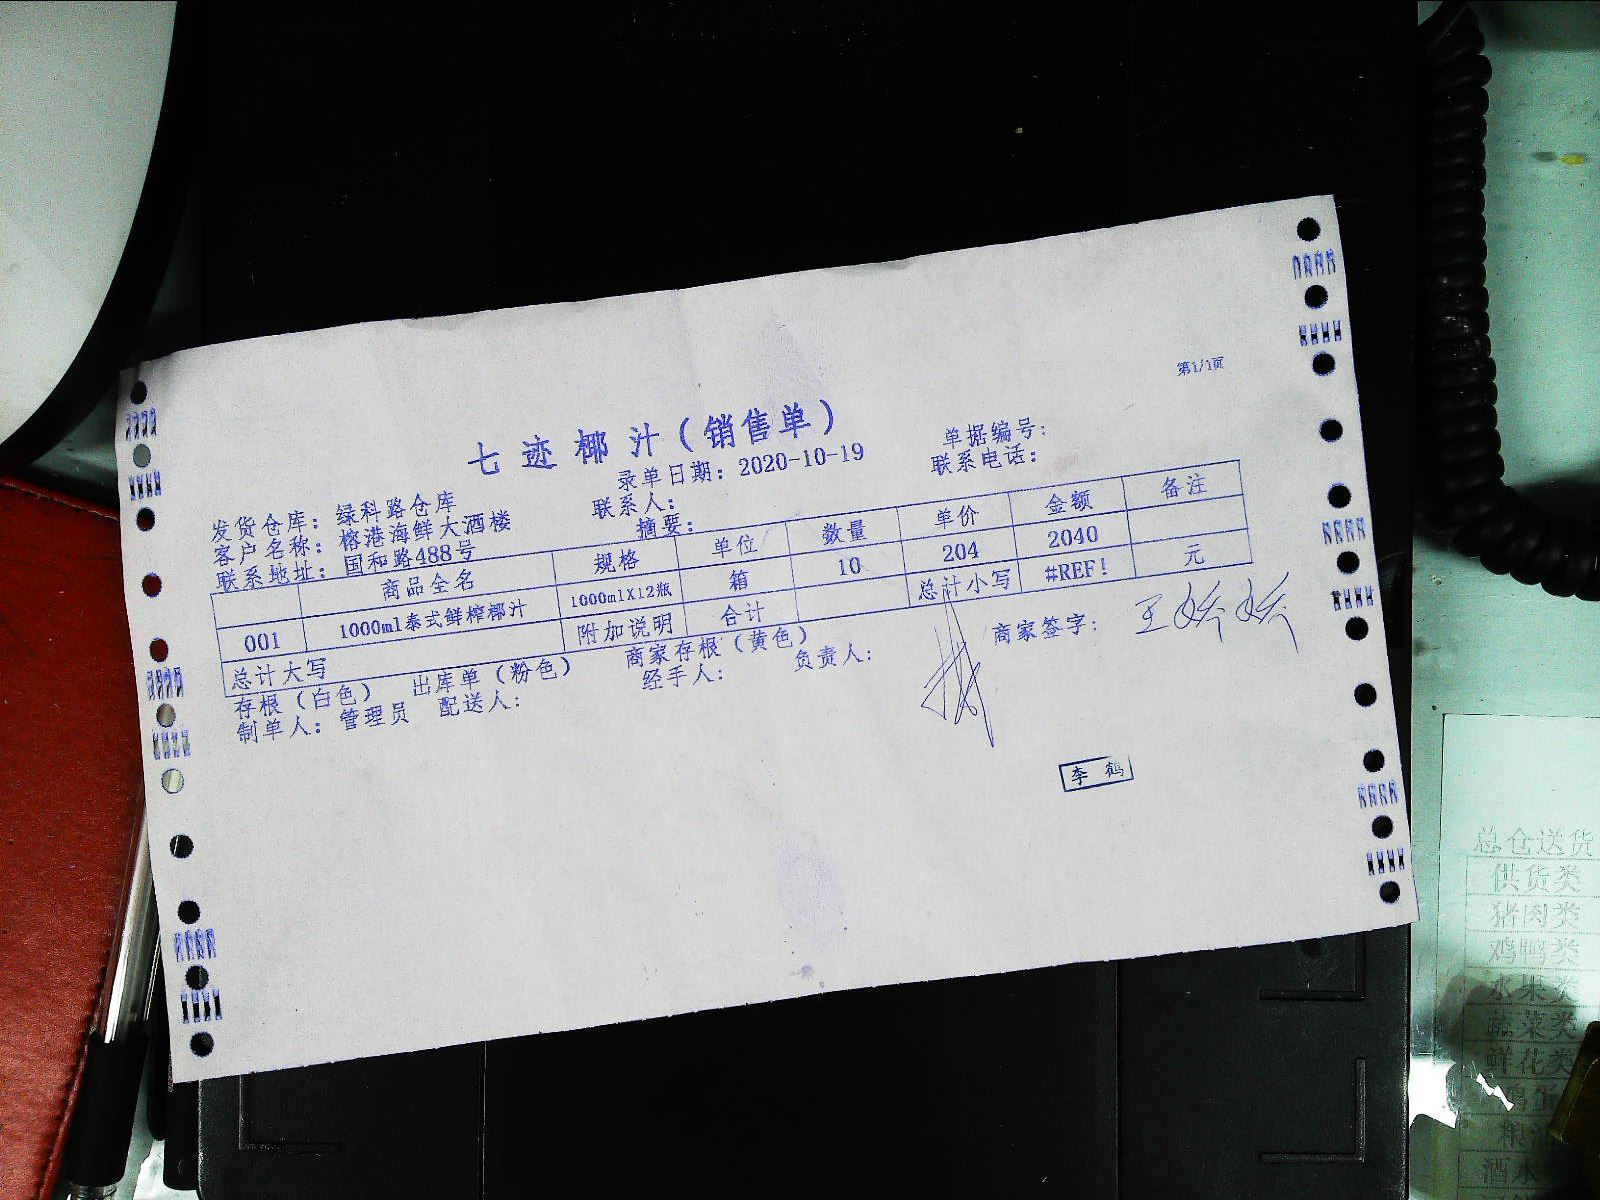 第1/1页
七迹椰汁(销售单)
录单日期: 2020-10-19
单据编号:
发货仓库: 绿科路仓库
联系人:
联系电话:
客户名称: 榕港海鲜大酒楼
摘要:
联系地址: 国和路488号
商品全名 规格 单位 数量 单价 金额 备注
001 1000ml泰式鲜榨椰汁 1000mlX12瓶 箱 10 204 2040
总计大写 附加说明 合计 总计小写 #REF! 元
存根(白色) 出库单(粉色) 商家存根(黄色)
商家签字: 王娇娇
制单人: 管理员 配送人: 经手人: 负责人:
李鹤
总仓送货
供货类
猪肉类
鸡鸭类
水果类
蔬菜类
鲜花类
鸡蛋
粮油
酒水